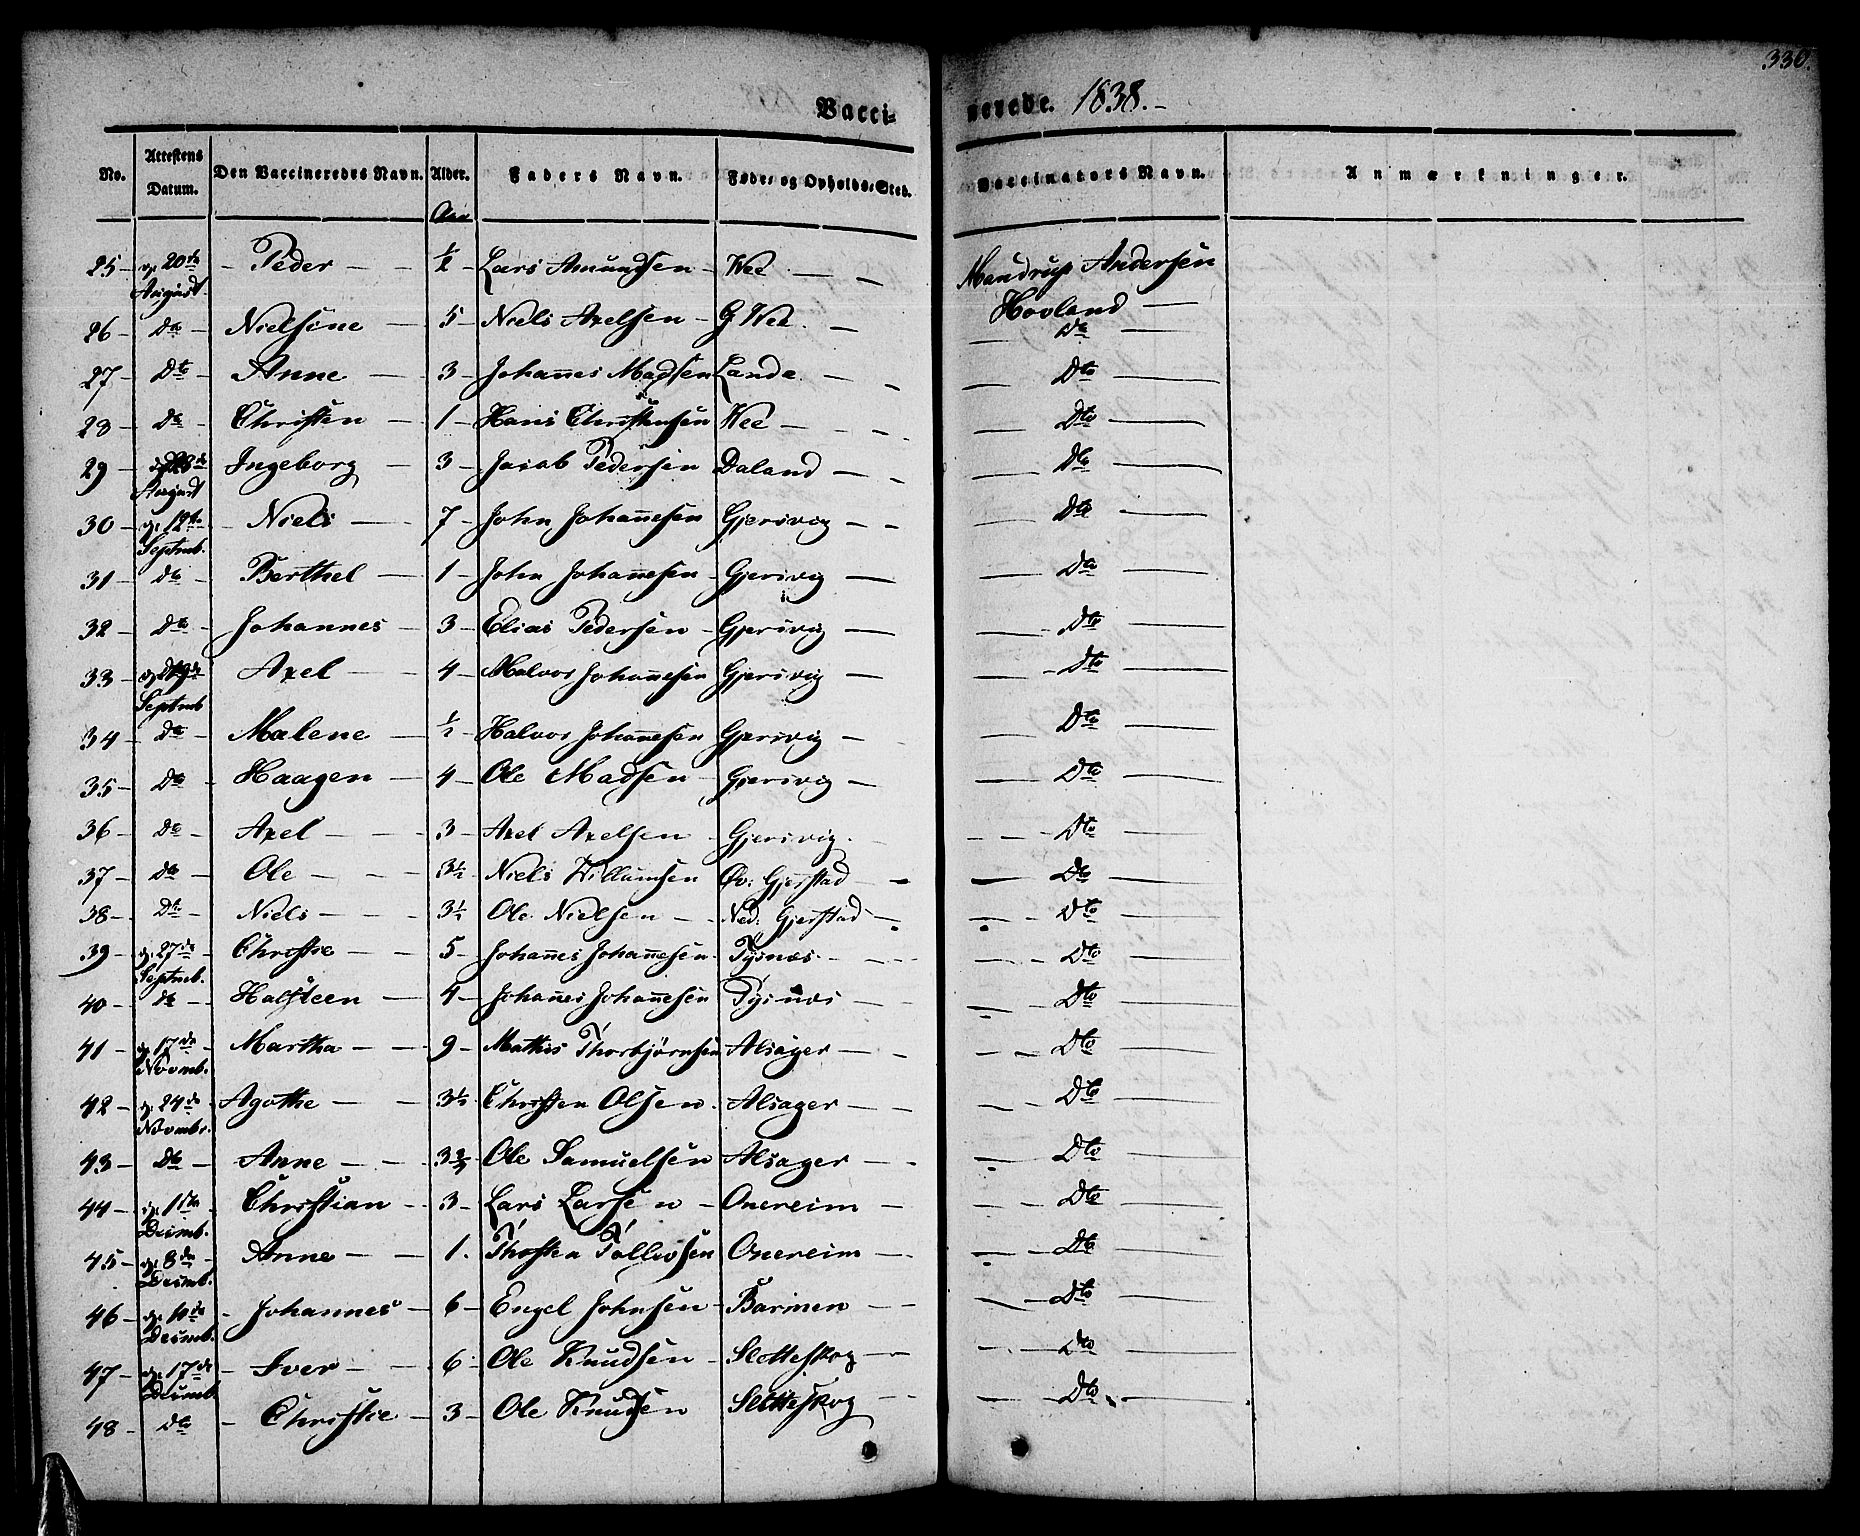 330.
Vaccinerede. 1838.-
No. Attestens Datum. Den Vaccineredes Navn. Alder. Faders Navn. Føde- og Opholds-Sted. Vaccinators Navn. Anmærkninger.
Aar
25 - d: 20de August - Peder - ½ Lars Amundsen - Wee - Mandrup Andersen Hovland
26 - Do - Nielsine - 5 - Niels Axelsen - G Wee. - Do
27 - Dto - Anne - 3 - Johannes Madsen Lande. - Dto
28 - Do - Christen - 1 - Hans Christensen Wee - Dto
29 August Ingeborg - 3 - Jacob Pedersen Daland - Dto
30 - d: 12te Septmb. - Niels - 7 - John Johannesen Gjersvig - Do
31 - do - Berthel - 1 - John Johannesen - Gjersvig - Do
32 - Do - Johannes - 3 - Elias Pedersen - Gjersvig - Dto
33 Septmb - Axel - 4 - Halvor Johannesen Gjersvig - Dto
34 - Do - Malene - ½ - Halvor Johannesen Gjersvig - Dto
35 - Do - Haagen - 4 - Ole Madsen - Gjersvig - Dto
36 - Do - Axel - 3 - Axel Axelsen - Gjersvig. - Dto
37 - Do - Ole - 3½ Niels Willumsen Øv: Gjerstad - Do
38 - Dto - Niels - 3½ Ole Nielsen - Ned: Gjerstad - Dto
39 - d: 27de Septmb. - Christie - 5 - Johannes Johannesen - Tysnæs - Dto
40 - do - Halsteen - 4 - Johannes Johannesen Tysnæs - Dto
41 - d: 17de Novmb. - Martha - 9 - Mathis Thorbjørnsen Alsager - Dto
42 - d: 24de Novmbr. - Agathe - 3½ - Christen Olsen - Alsager - Dto
43 - Do - Anne - 3 Ole Samuelsen Alsager - Dto
44 - d: 1ste Decmb. - Christian - 3 - Lars Larsen - Onereim - Dto
45 - d: 8de Decmb. - Anne - 1. Thosten Tollevsen Onereim - Do
46 - d: 10de Decmb. - Johannes - 6 - Engel Johnsen - Barmen - Dto
47 - d: 17de Decmb. - Iver - 6 - Ole Knudsen - Sletteskog - Dto
48 - Do - Christie - 3 - Ole Knudsen Sletteskog - Dto